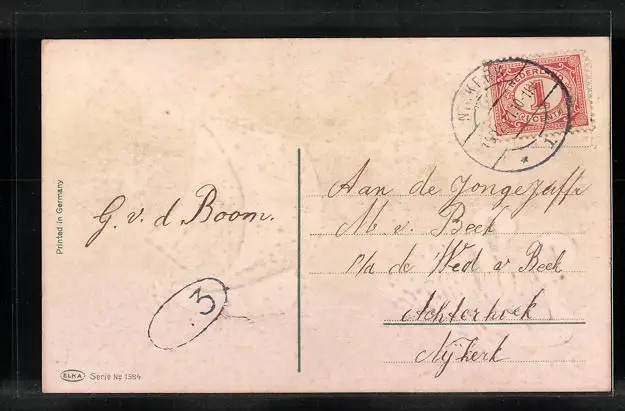 NEDERLAND
1
CENT
NIJKERK
G. v. d Boom.
Aan de Jongejuffr
M v. Beek
p/a de Wed v Beek
Achterhoek
Nijkerk
3
Printed in Germany
ELKA Serie No 1584